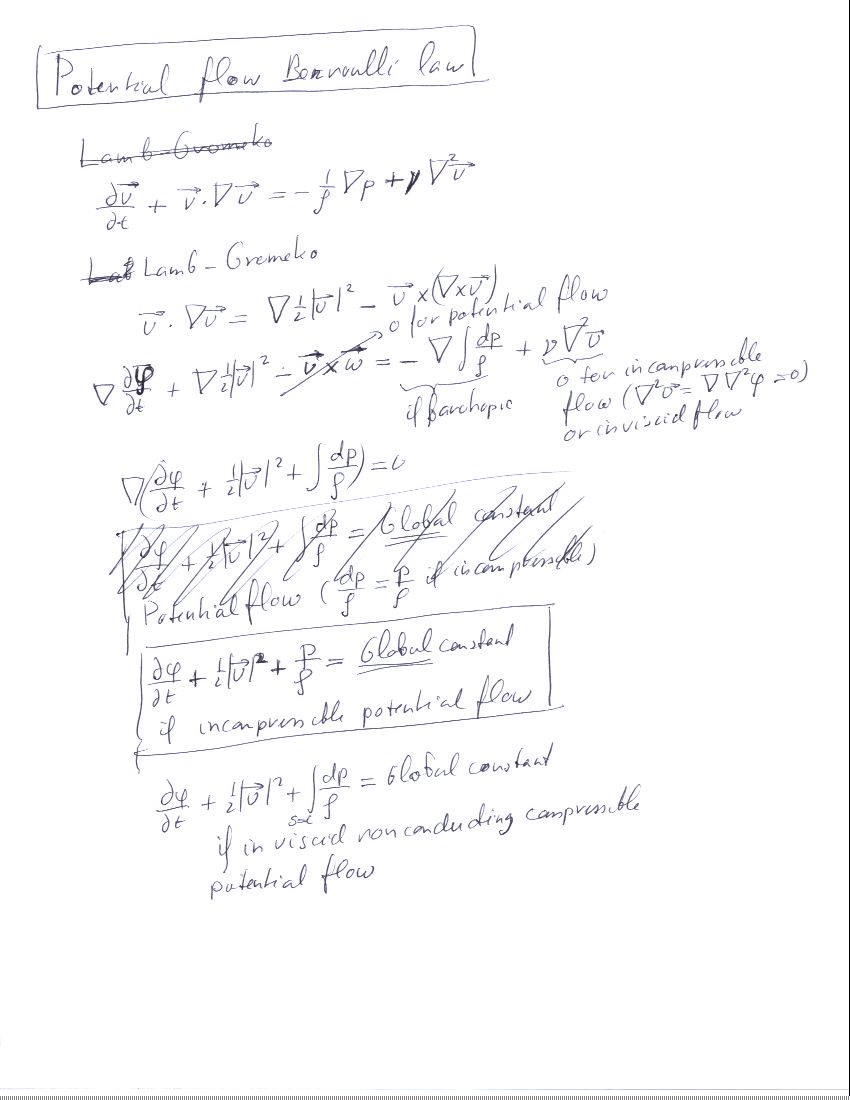 Potential flow Bernoulli law
Lamb-Gromeko
∂v⃗/∂t + v⃗·∇v⃗ = -1/ρ ∇p + ν∇²v⃗
Lamb-Gromeko
v⃗·∇v⃗ = ∇½|v⃗|² - v⃗×(∇×v⃗)
0 for potential flow
∇ ∂φ/∂t + ∇½|v⃗|² - v⃗×ω⃗ = -∇∫dp/ρ + ν∇²v⃗
if Barotropic
0 for incompressible
flow (∇²v⃗ = ∇∇²φ = 0)
or inviscid flow
∇(∂φ/∂t + ½|v⃗|² + ∫dp/ρ) = 0
∂φ/∂t + ½|v⃗|² + ∫dp/ρ = Global constant
Potential flow (dp/ρ = p/ρ if incompressible)
∂φ/∂t + ½|v⃗|² + p/ρ = Global constant
if incompressible potential flow
∂φ/∂t + ½|v⃗|² + ∫dp/ρ = Global constant
if inviscid nonconducting compressible
potential flow